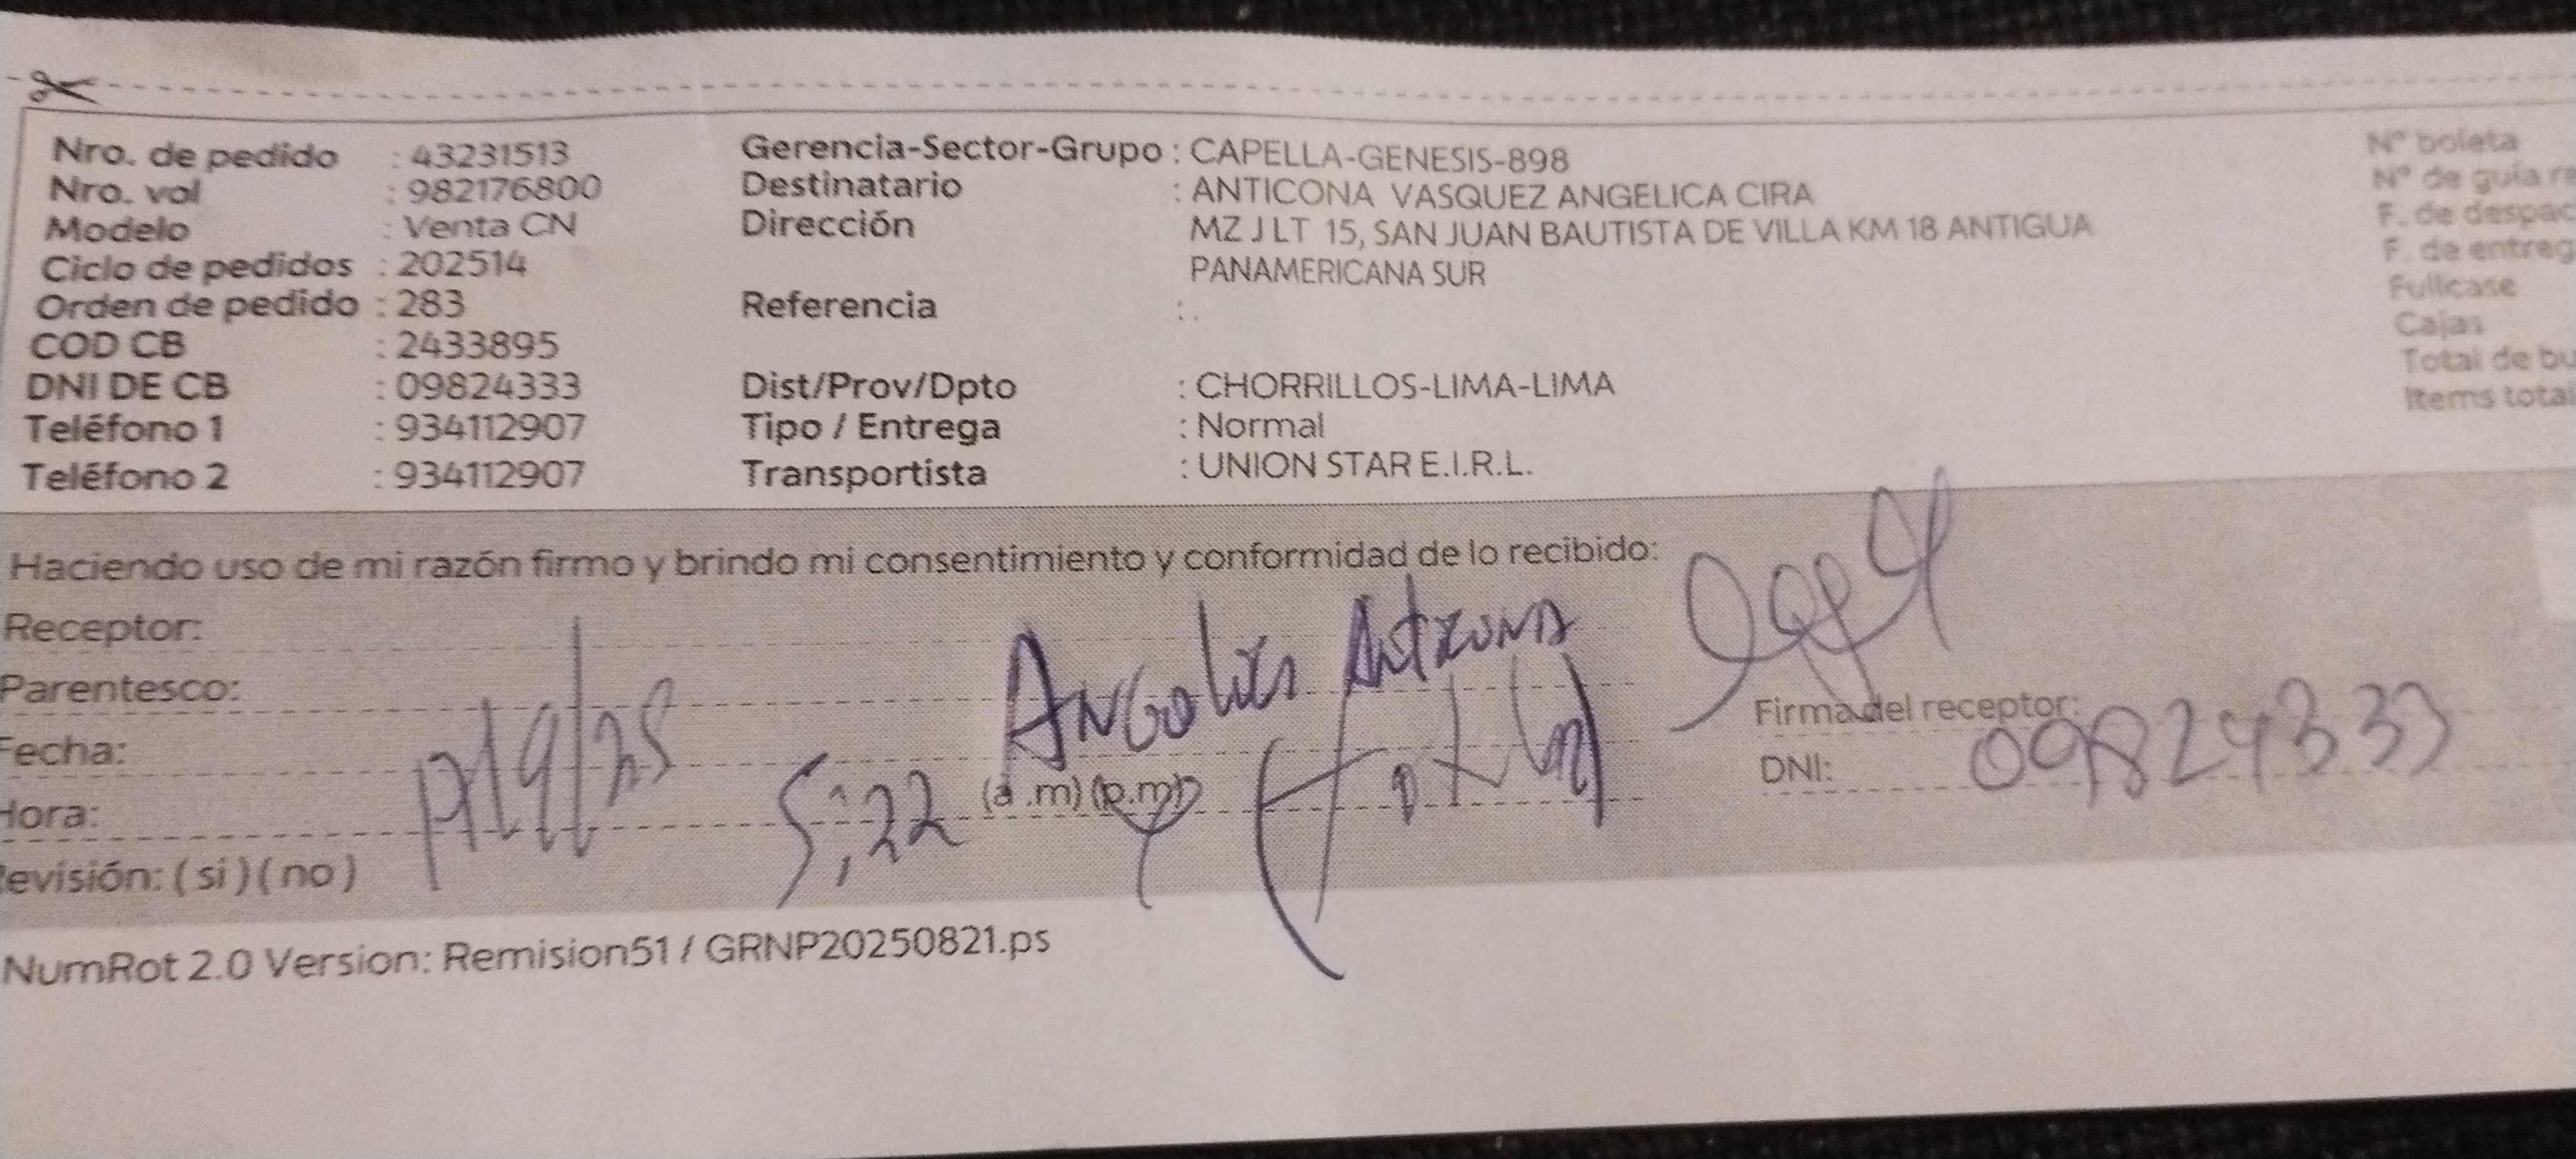 Nro. de pedido : 43231513
Nro. vol : 982176800
Modelo : Venta CN
Ciclo de pedidos : 202514
Orden de pedido : 283
COD CB : 2433895
DNI DE CB : 09824333
Teléfono 1 : 934112907
Teléfono 2 : 934112907
Gerencia-Sector-Grupo : CAPELLA-GENESIS-898
Destinatario : ANTICONA VASQUEZ ANGELICA CIRA
Dirección MZ J LT 15, SAN JUAN BAUTISTA DE VILLA KM 18 ANTIGUA
PANAMERICANA SUR
Referencia : .
Dist/Prov/Dpto : CHORRILLOS-LIMA-LIMA
Tipo / Entrega : Normal
Transportista : UNION STAR E.I.R.L.
N° boleta
N° de guía
F. de
F. de
Fullcase
Cajas
Total de
Items total
Haciendo uso de mi razón firmo y brindo mi consentimiento y conformidad de lo recibido:
Receptor:
Parentesco:
Fecha:
Hora: 5:22 (a.m) (p.m)
Revisión: ( si ) ( no )
Firma del receptor:
DNI: 09824333
NumRot 2.0 Version: Remision51 / GRNP20250821.ps